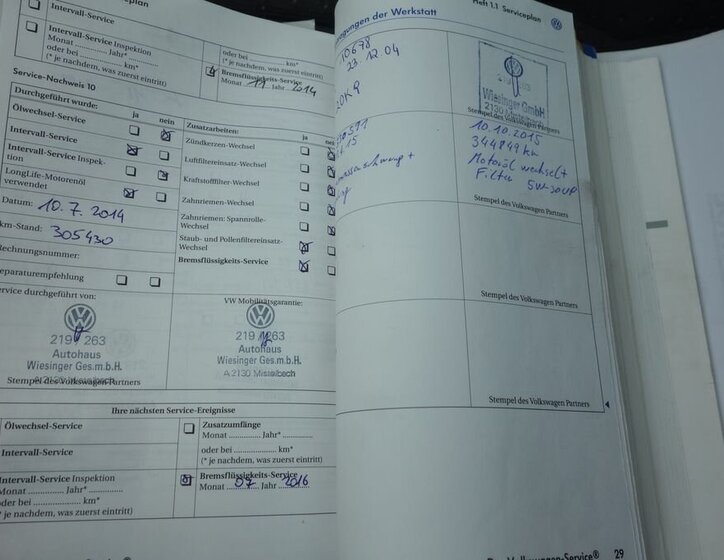 plan
Intervall-Service
Intervall-Service Inspektion
Monat ............ Jahr*............
oder bei ............ km*
(* je nachdem, was zuerst eintritt)
oder bei ............ km*
(* je nachdem, was zuerst eintritt)
Bremsflüssigkeits-Service
Monat 11 Jahr 2014
Service-Nachweis 10
Durchgeführt wurde: ja nein
Ölwechsel-Service
Intervall-Service
Intervall-Service Inspek-
tion
LongLife-Motorenöl
verwendet
Datum: 10.7.2014
km-Stand: 305430
Rechnungsnummer:
eparaturempfehlung
Zusatzarbeiten: ja nei
Zündkerzen-Wechsel
Luftfiltereinsatz-Wechsel
Kraftstofffilter-Wechsel
Zahnriemen-Wechsel
Zahnriemen: Spannrolle-
Wechsel
Staub- und Pollenfiltereinsatz-
Wechsel
Bremsflüssigkeits-Service
ervice durchgeführt von:
219 263
Autohaus
Wiesinger Ges.m.b.H.
A 2130 Mistelbach
Stempel des Volkswagen Partners
VW Mobilitätsgarantie:
219 263
Autohaus
Wiesinger Ges.m.b.H.
A 2130 Mistelbach
Ihre nächsten Service-Ereignisse
Ölwechsel-Service
Intervall-Service
Intervall-Service Inspektion
Monat ............ Jahr*............
oder bei ............ km*
(* je nachdem, was zuerst eintritt)
Zusatzumfänge
Monat ............ Jahr*............
oder bei ............ km*
(* je nachdem, was zuerst eintritt)
Bremsflüssigkeits-Service
Monat 07 Jahr 2016
Heft 1.1 Serviceplan
gungen der Werkstatt
10678
23.12.04
Wiesinger GmbH
2130 Mistelbach
Stempel des Volkswagen Partners
10.10.2015
344849 km
Motoröl wechsel +
Filter 5W-30
Stempel des Volkswagen Partners
Stempel des Volkswagen Partners
Stempel des Volkswagen Partners
Volkswagen-Service®
29